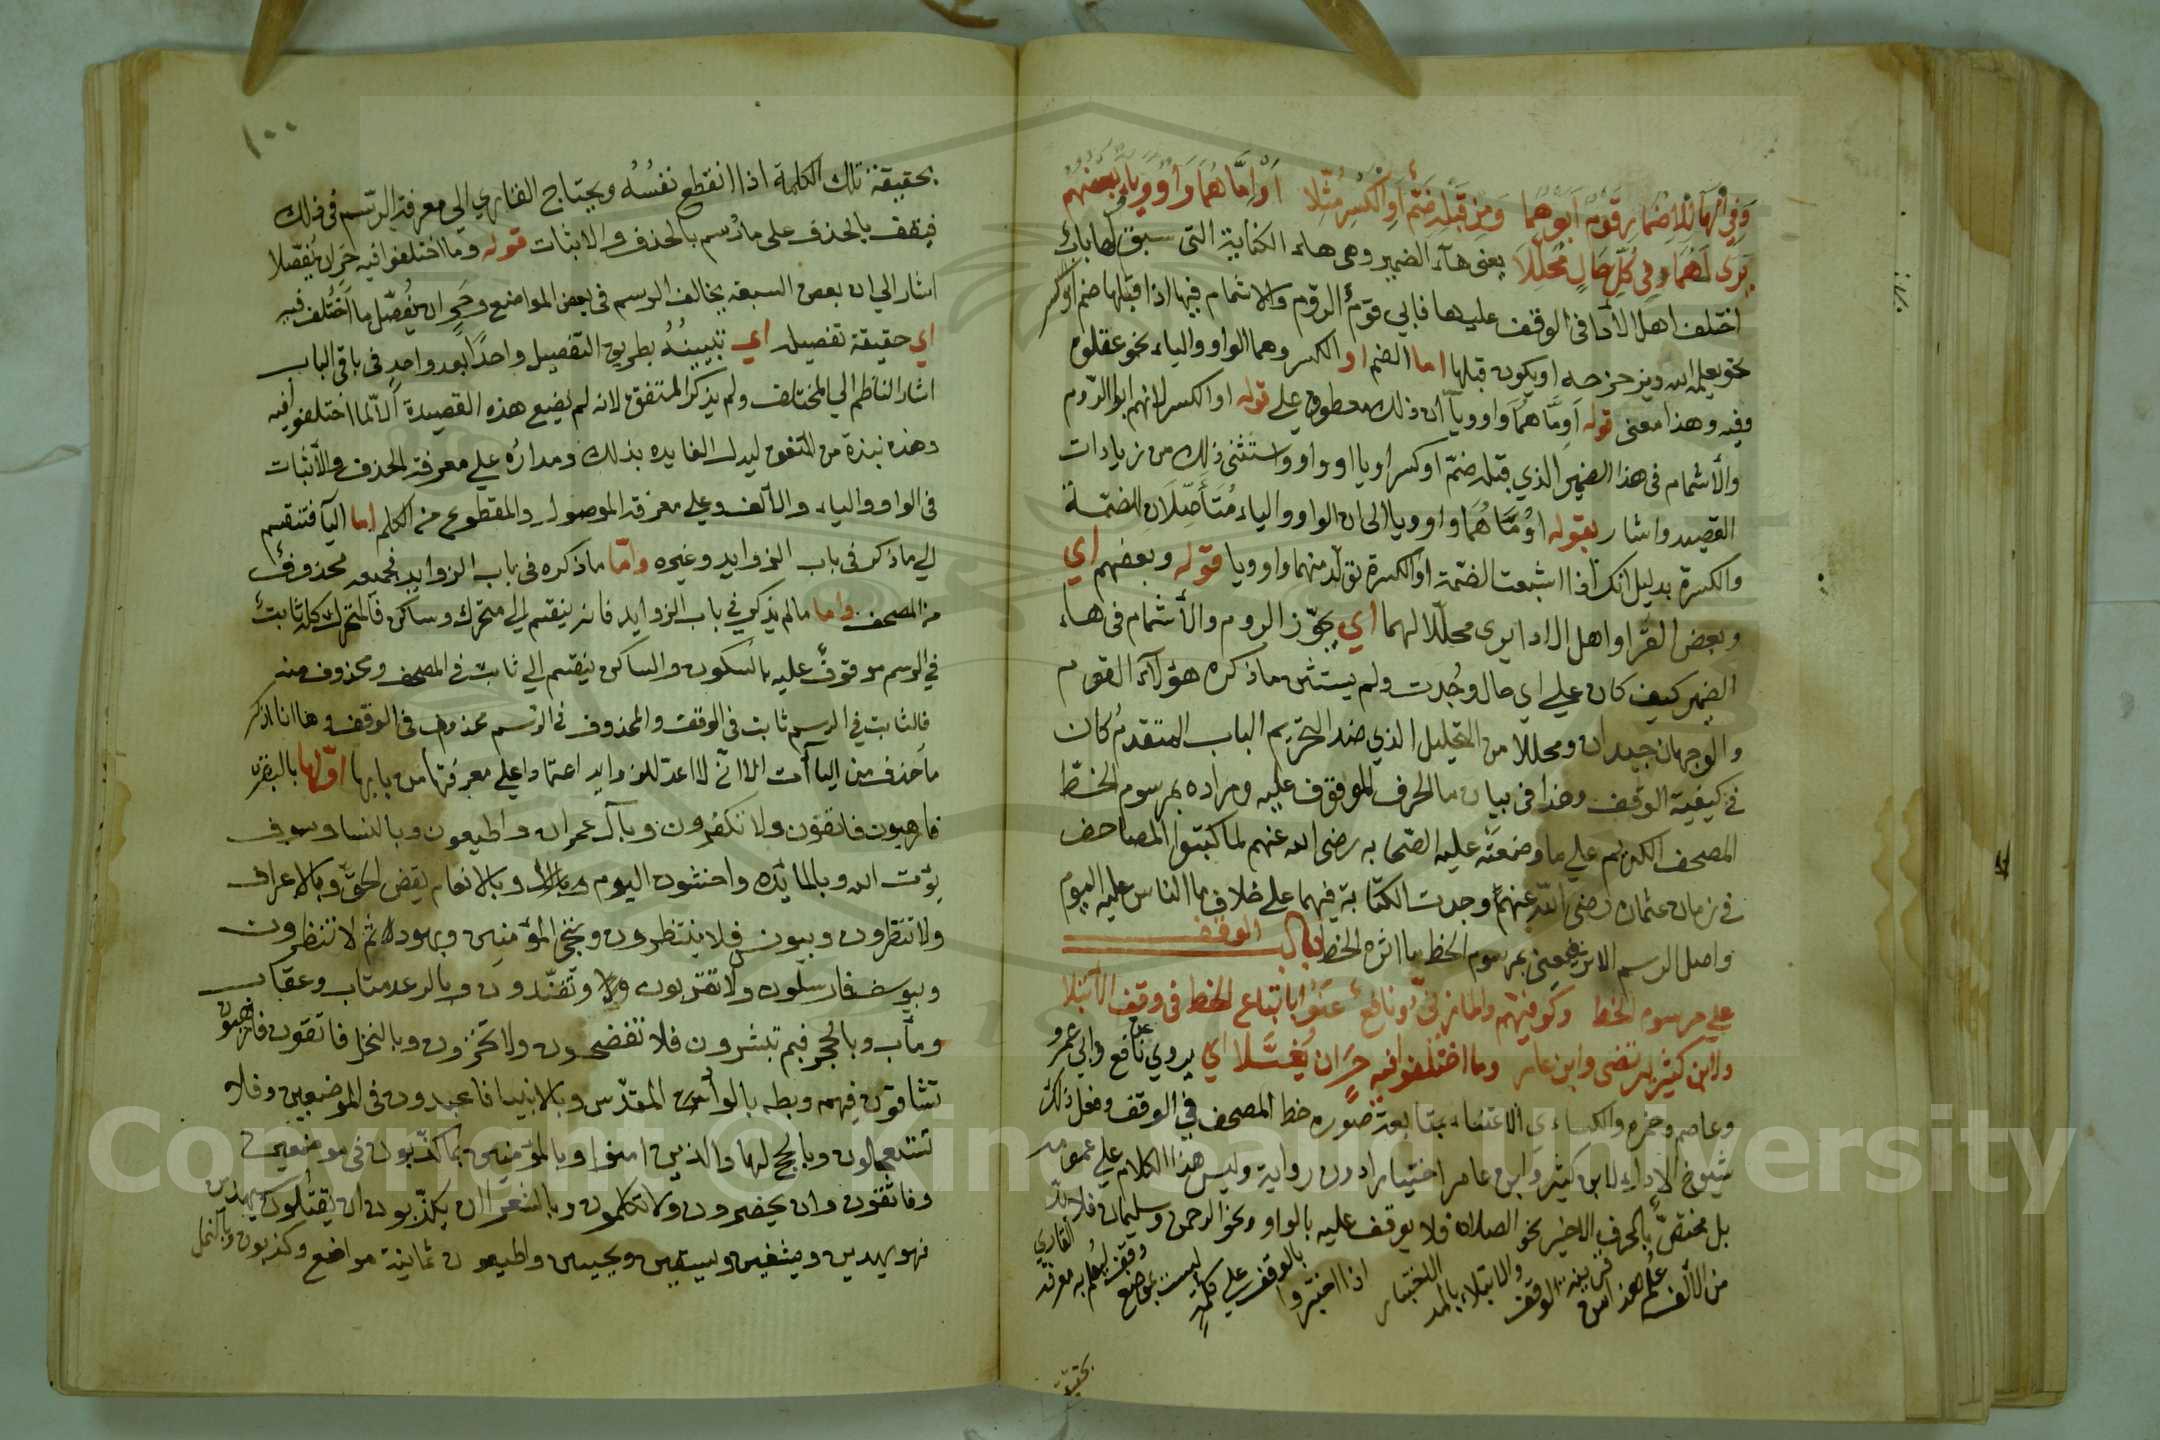 وفي الهاء للاضمار قوم ابوهما ومن قبله ضم أو الكسر مثلا أو اماهما واو وياء وبعضهم
يرى لهما في كل حال محللا يعنى هاء الضمير وهى هاء الكناية التى سبق لها باب
اختلف اهل الأدا فى الوقف عليها فابي قوم الروم والاشمام فيها اذا قبلها ضم أوكسر
نحو يعلمه الله وبمزحزحه او يكون قبلها اما الضم او الكسر وهما الواو والياء نحو عقلوه
وفيه وهذا معنى قوله أو اماهما واو وياء ان ذلك معطوف على قوله او الكسر لانهم ابوا الروم
والأشمام فى هذا الضمير الذي قبله ضم او كسر او يا او واو واستثنى ذلك من زيادات
القصيد واشار بقوله او اماهما واو ويا الى ان الواو والياء متأصلان للضمة
والكسرة بدليل انك اذا اشبعت الضمة او الكسرة تولد منهما واو ويا قوله وبعضهم اي
وبعض القرا واهل الادا يرى محللا لهما اي يجوز الروم والأشمام فى هاء
الضمير كيف كان علي اي حال وجدت ولم يستثن ما ذكره هؤلاء القوم
والوجهان جيدان ومحللا من التحليل الذي ضد التحريم الباب المتقدم كان
في كيفية الوقف وهذا فى بيان ما الحرف الموقوف عليه ومراده بمرسوم الخط
المصحف الكريم علي ما وضعته عليه الصحابه رضى الله عنهم لما كتبوا المصاحف
في زمان عثمان رضي الله عنهم وجدت الكتابة فيهما على خلاف ما الناس عليه اليوم
واصل الرسم الاثر فمعنى بمرسوم الخط ما اثره الخط باب الوقف
على مرسوم الخط وكوفيهم والمازني ونافع عنوا باتباع الخط في وقف الابتلا
ولابن كثير يرتضى وابن عامر وما اختلفوا فيه حر ان يفصلا اي يروي عن نافع وابي عمرو
وعاصم وحمزه والكساءى الاعتناء بمتابعة صوره خط المصحف في الوقف وفعل ذلك
شيوخ الأداء لابن كثير وابن عامر اختيارا دون رواية وليس هذا الكلام علي عمومه
بل مختص بالحرف الاخير نحو الصلاه فلا يوقف عليه بالواو ونحو الرحمن وسليمان فلا بد
من الألف علم هذا من قرينة الوقف والابتلاء بالمد الاختبار اذا اختبروا بالوقف علي كلمة ليست بموضع وقف ليعلم به معرفة القاري
بحقيقة
١٠٠
بحقيقة تلك الكلمة اذا انقطع نفسه ويحتاج القاري الي معرفة الرسم فى ذلك
فيقف بالحذف على ما رسم بالحذف والاثبات قوله وما اختلفوا فيه حر ان يفصلا
اشار الي ان بعض السبعة يخالف الرسم فى بعض المواضع وحر ان يفصل ما اختلف فيه
اي حقيقة تفصيله اي تبيينه بطريق التفصيل واحدا بعد واحد فى باقى الباب
اشار الناظم الي المختلف ولم يذكر المتفق لانه لم يضع هذه القصيدة الا لما اختلفوا فيه
وهذه نبذة من المتفق ليدل الفايده بذلك ومداره علي معرفة الحذف والأثبات
فى الواو والياء والألف وعلي معرفة الموصول والمقطوع من الكلم اما اليا فتنقسم
الي ما ذكر فى باب الزوايد وغيره واما ما ذكره فى باب الزوايد فجميعه محذوف
من المصحف واما ما لم يذكر في باب الزوايد فانه ينقسم الي متحرك وساكن فالمتحرك كله ثابت
في الرسم موقوف عليه بالسكون والساكن ينقسم الي ثابت فى المصحف ومحذوف منه
فالثابت في الرسم ثابت فى الوقف والمحذوف فى الرسم محذوف فى الوقف وها انا اذكر
ما حذف من الياآت الا انى لا اعد الزوايد اعتمادا علي معرفتها من بابها اولها بالبقرة
فارهبون فاتقون ولا تكفرون وبآل عمران واطيعون وبالنسا وسوف
يؤت الله وبالمائده واخشون اليوم وبالانعام يقض الحق وبالاعراف
ولا تنظرون وبيونس فلا تنظرون وننجي المؤمنين وبهود ثم لا تنظرون
وبيوسف فارسلون ولا تقربون ولا وتفندون وبالرعد متاب وعقاب
ومأب وبالحجر فبم تبشرون فلا تفضحون ولا تخزون وبالنحل فاتقون فارهبون
تشاقون فيهم وبطه بالواد المقدس وبالانبيا فاعبدون فى الموضعين وفلا
تستعجلون وبالحج لهاد الذين امنوا وبالمؤمنين بما كذبون فى موضعين
وفاتقون وان يحضرون ولا تكلمون وبالشعرا ان يكذبون ان يقتلون سيهدين
فهو يهدين ويشفين ويسقين ويحيين واطيعون ثمانية مواضع وكذبون وبالنمل
Copyright © King Saud University